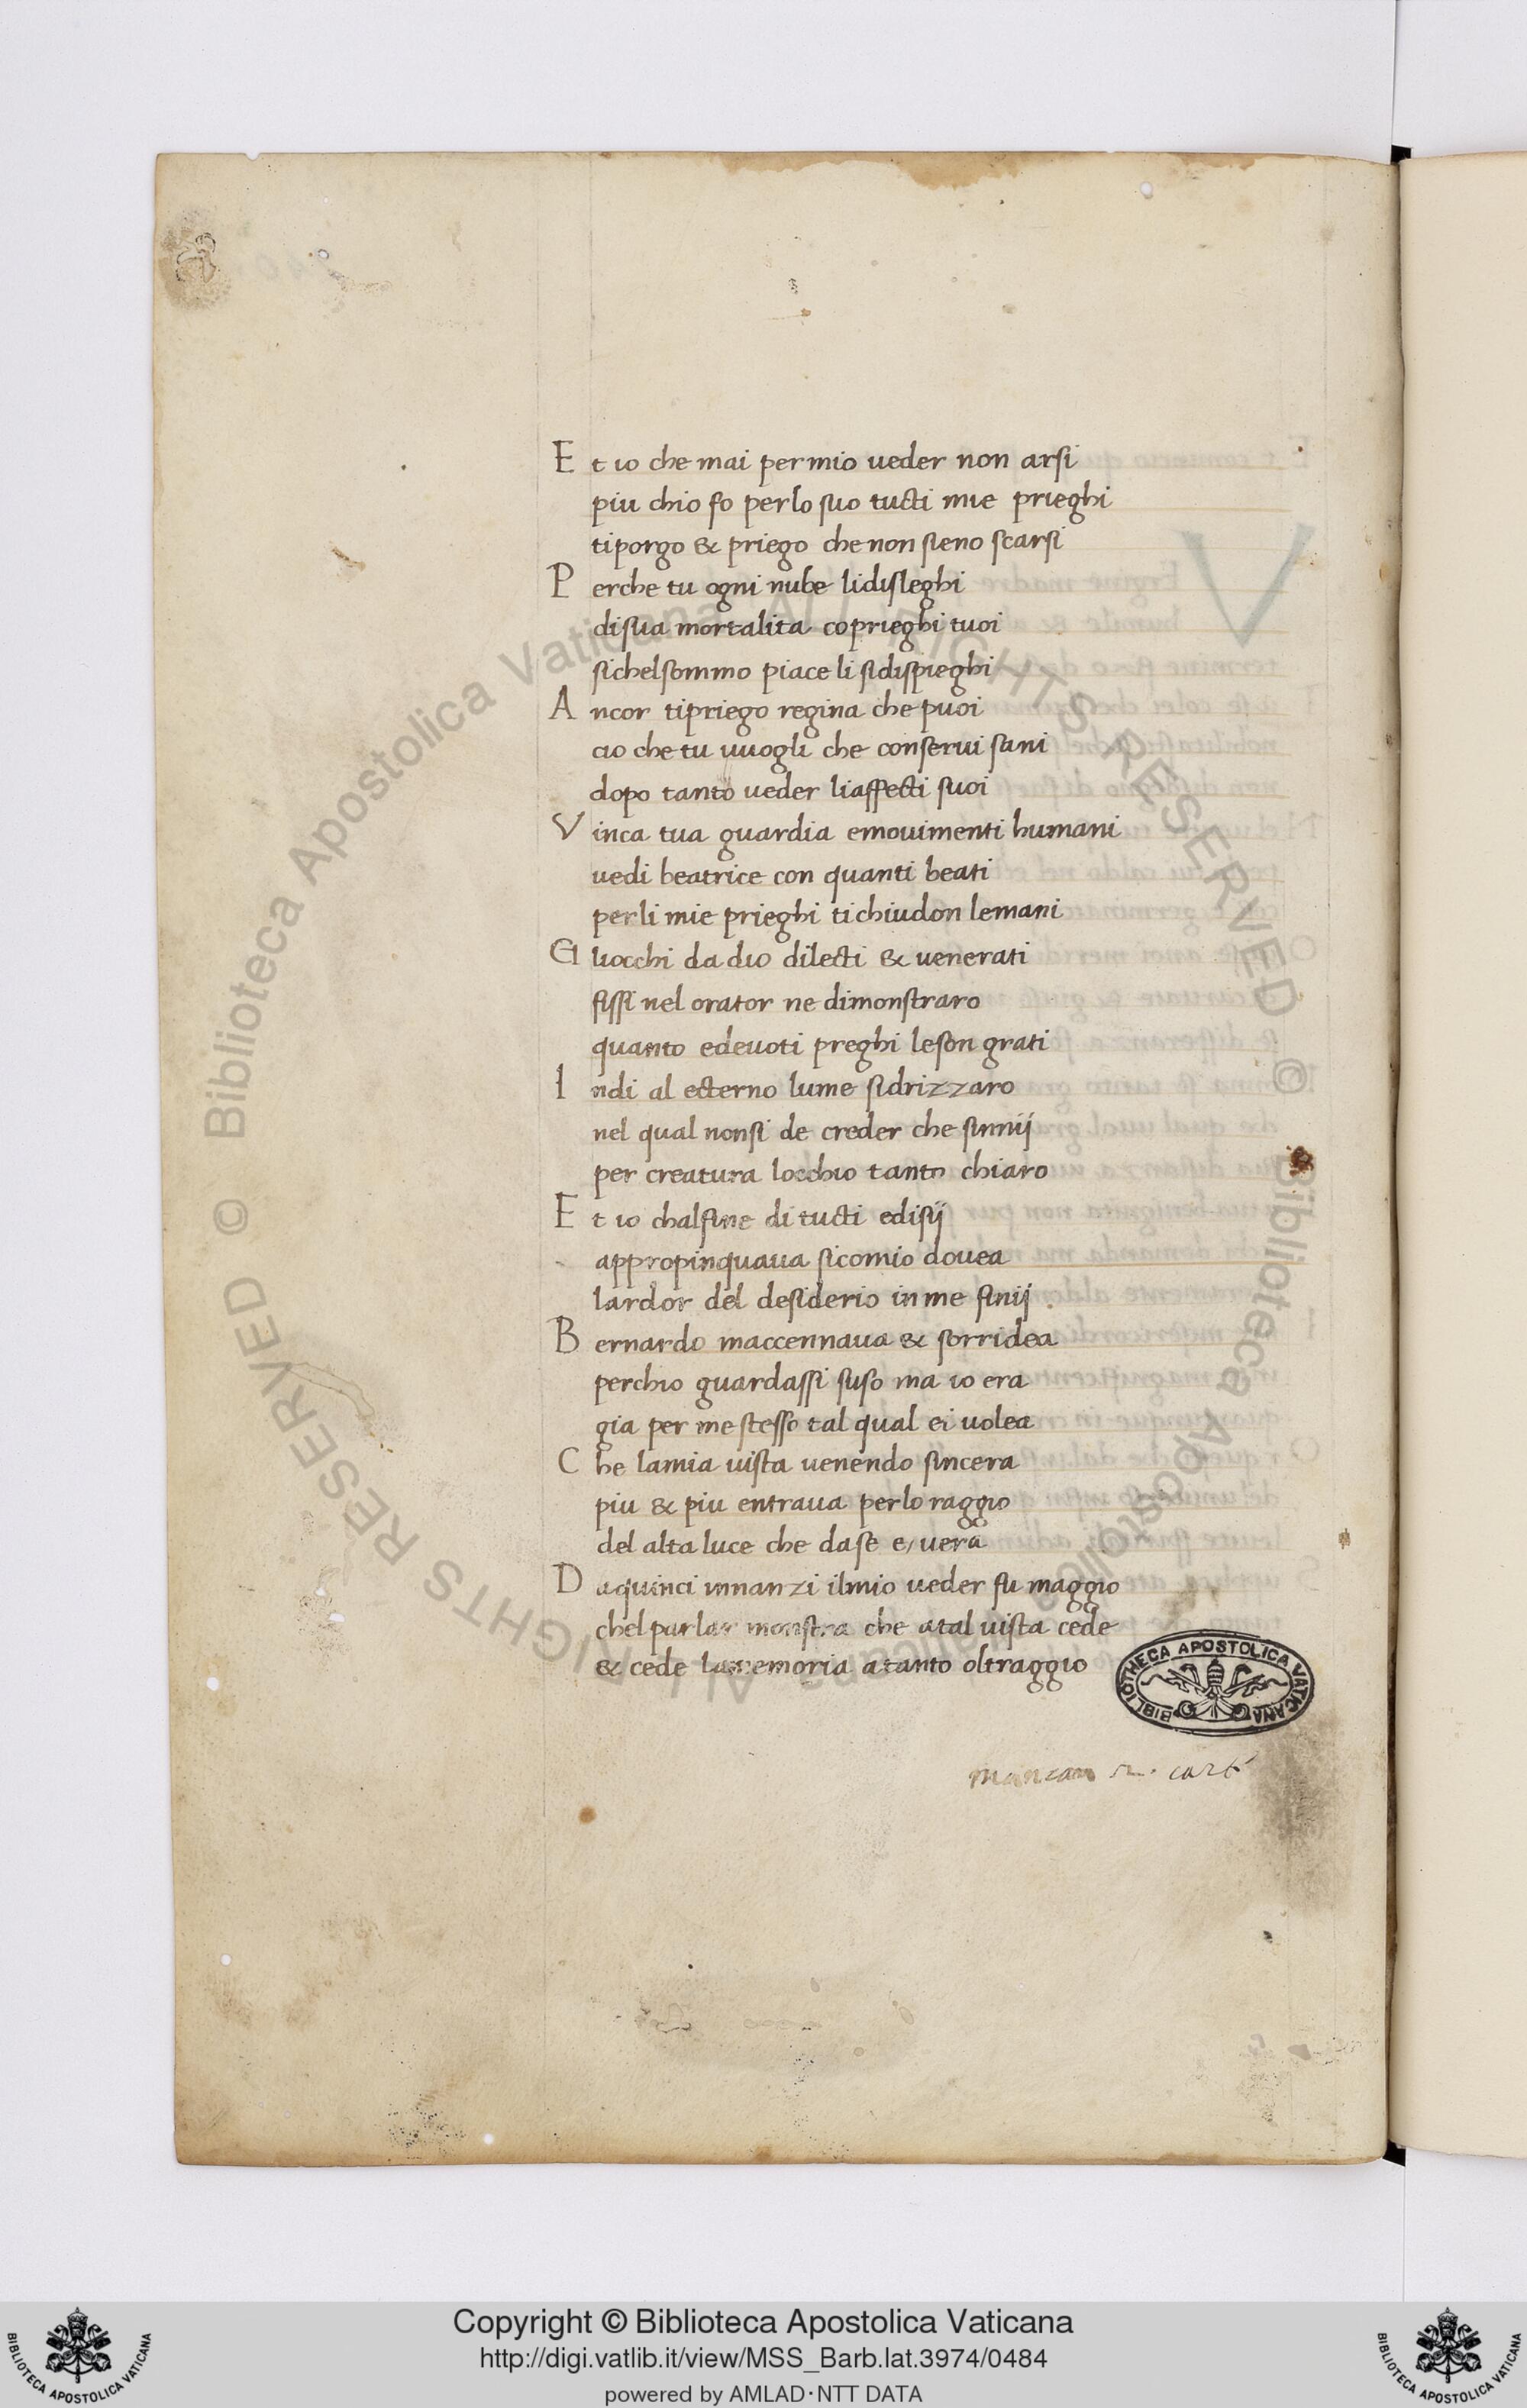 E t io che mai per mio ueder non arsi
piu chio fo per lo suo tucti mie prieghi
tiporgo & priego che non sieno scarsi
P erche tu ogni nube lidisleghi
disua mortalita coprieghi tuoi
sichelsommo piace li sidispieghi
A ncor tipriego regina che puoi
cio che tu vuogli che conserui sani
dopo tanto ueder liaffecti suoi
V inca tua guardia emouimenti humani
uedi beatrice con quanti beati
perli mie prieghi tichiudon lemani
Gl iocchi da dio dilecti & uenerati
fissi nel orator ne dimonstraro
quanto edeuoti preghi leson grati
I ndi al ecterno lume sidrizzaro
nel qual nonsi de creder che sinnij
per creatura locchio tanto chiaro
E t io chalfine di tucti edisij
appropinquaua sicomio douea
lardor del desiderio in me finij
B ernardo maccennaua & sorridea
perchio guardassi suso ma io era
gia per me stesso tal qual ei uolea
C he lamia uista uenendo sincera
piu & piu entraua perlo raggio
del alta luce che dase e uera
D aquinci innanzi ilmio ueder fu maggio
chelparlar monstra che atal uista cede
& cede lamemoria atanto oltraggio
BIBLIOTHECA APOSTOLICA VATICANA
cart
Biblioteca Apostolica Vaticana ALL RIGHTS RESERVED © Biblioteca Apostolica Vaticana ALL RIGHTS RESERVED ©
Copyright © Biblioteca Apostolica Vaticana
http://digi.vatlib.it/view/MSS_Barb.lat.3974/0484
powered by AMLAD·NTT DATA
BIBLIOTECA APOSTOLICA VATICANA
BIBLIOTECA APOSTOLICA VATICANA